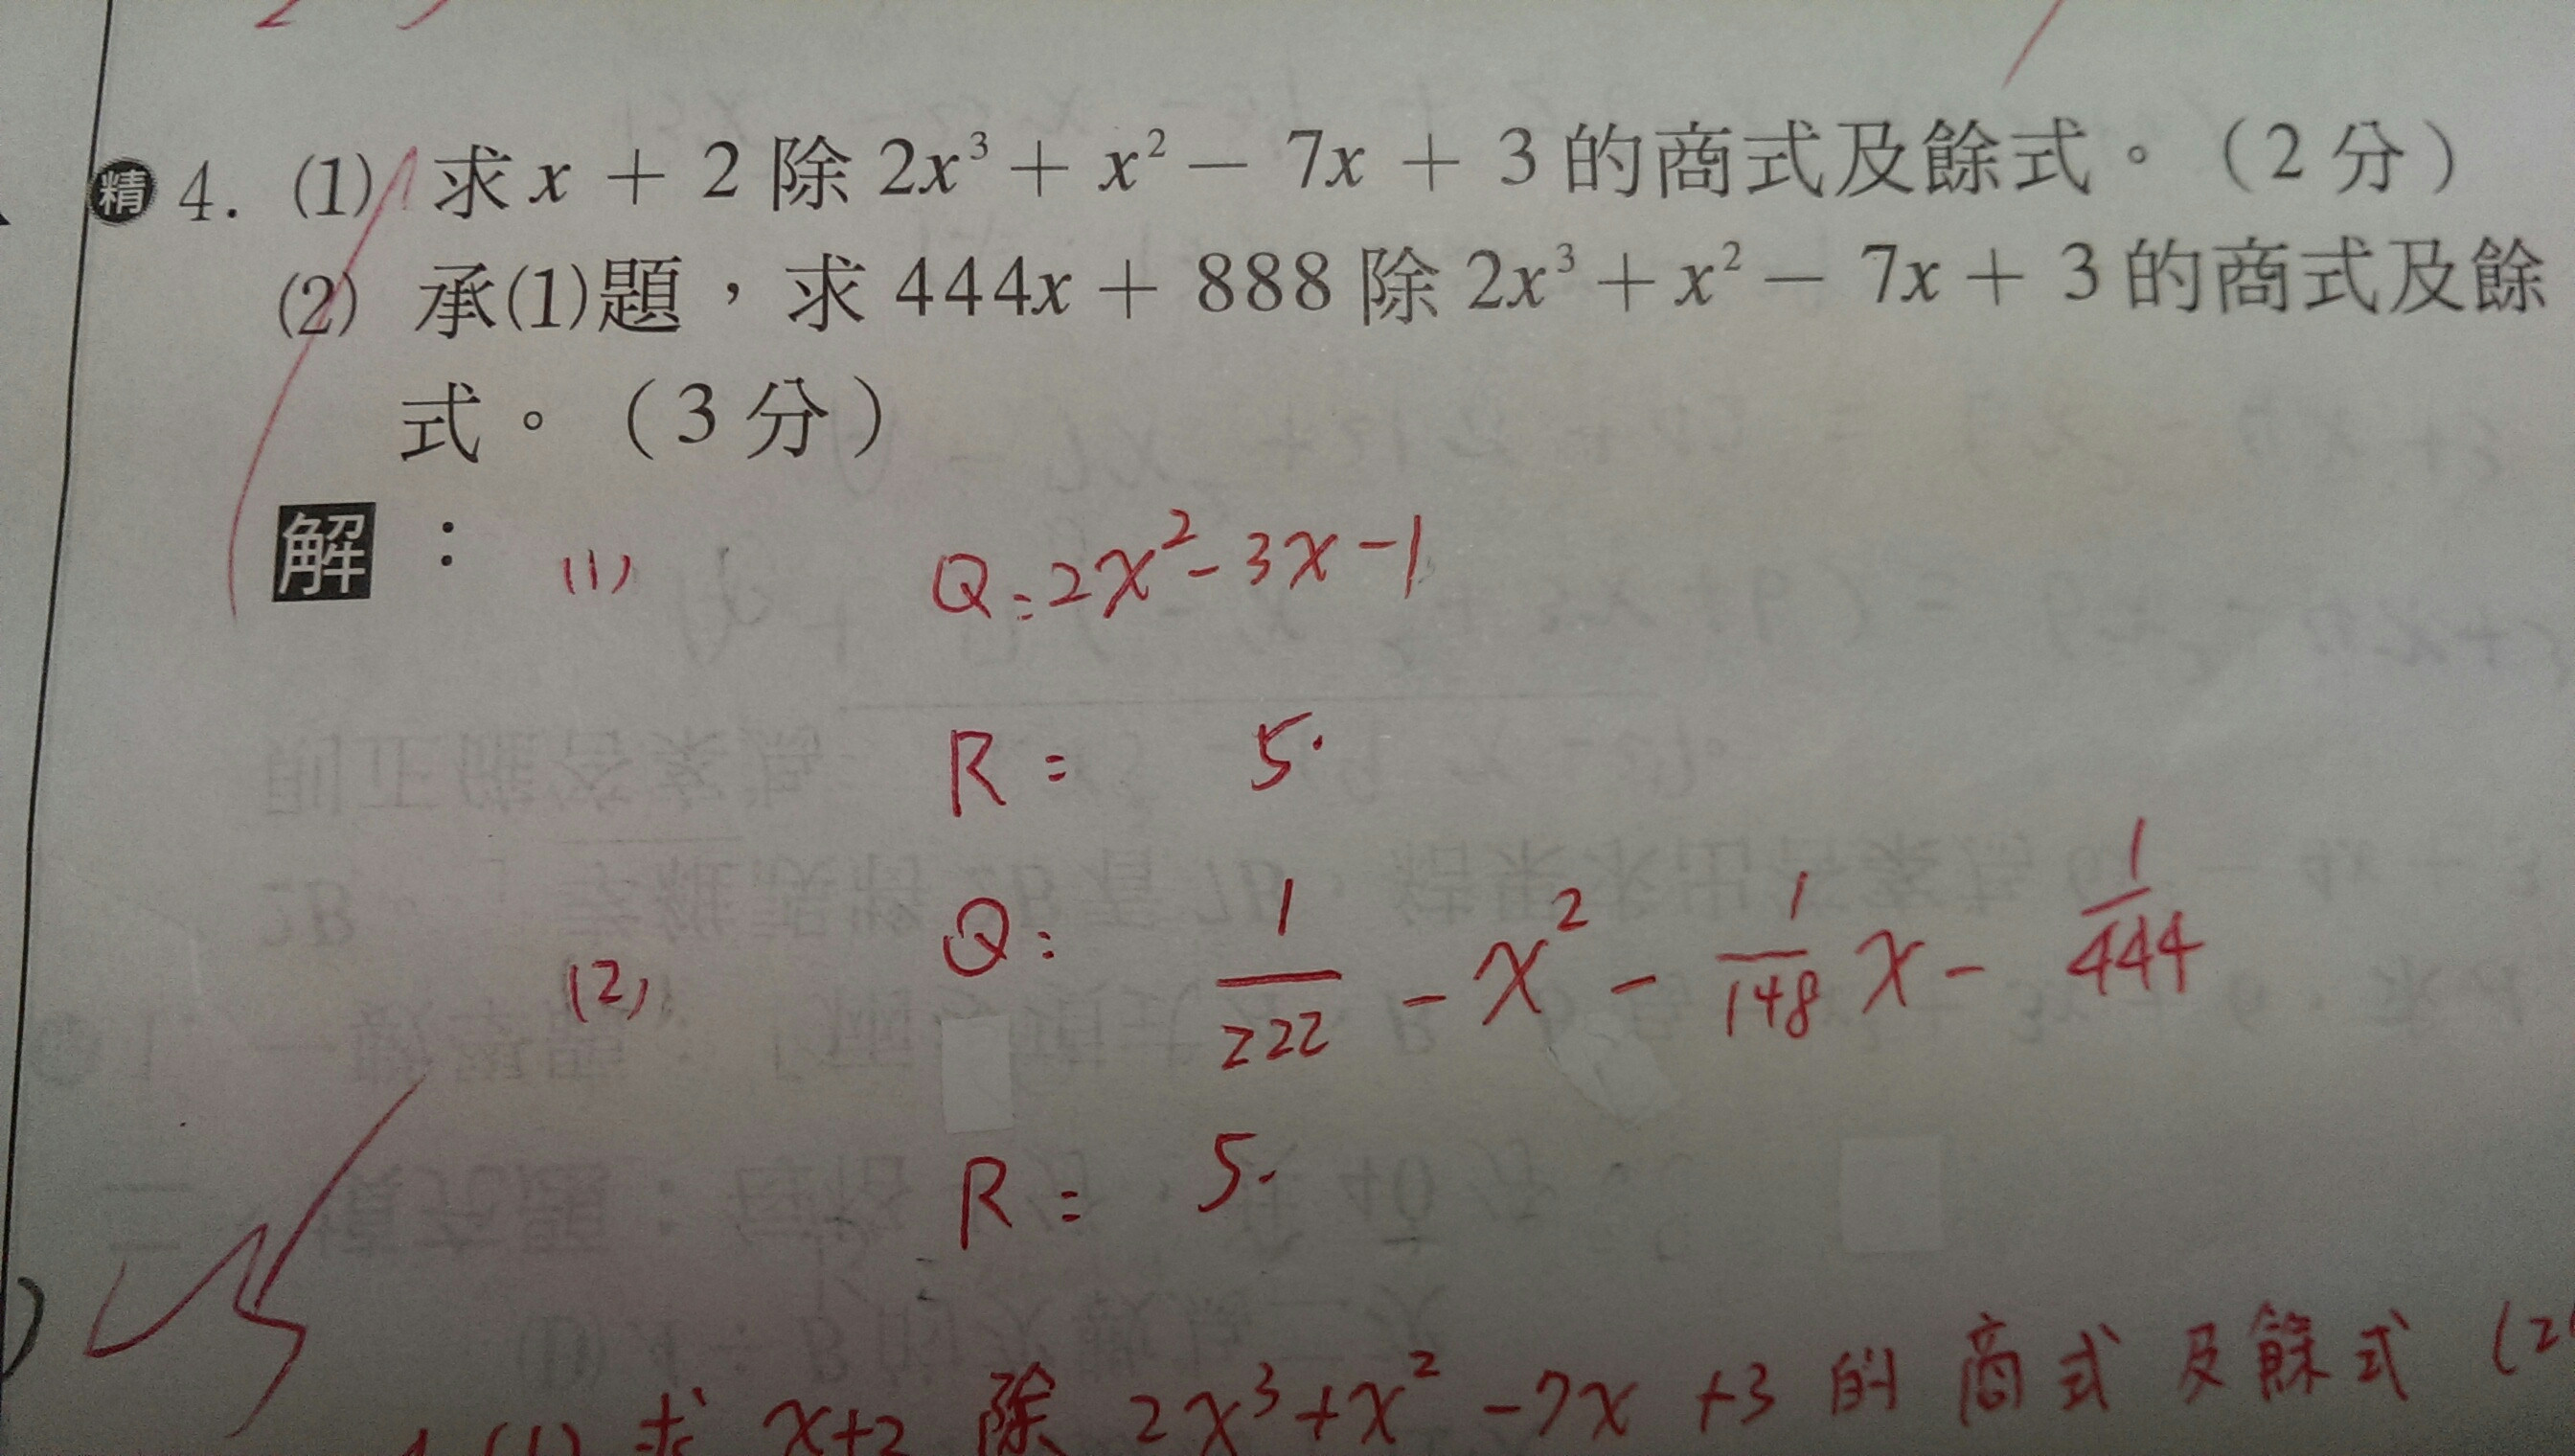 精 4. (1) 求 x + 2 除 2x³ + x² − 7x + 3 的商式及餘式。(2 分)
(2) 承(1)題，求 444x + 888 除 2x³ + x² − 7x + 3 的商式及餘
式。(3 分)
解：(1) Q = 2x² - 3x - 1
R = 5.
(2) Q = 1/222 - x² - 1/148 x - 1/444
R = 5.
(1) 求 x+2 除 2x³+x² -7x +3 的 商式 及 餘式 (2